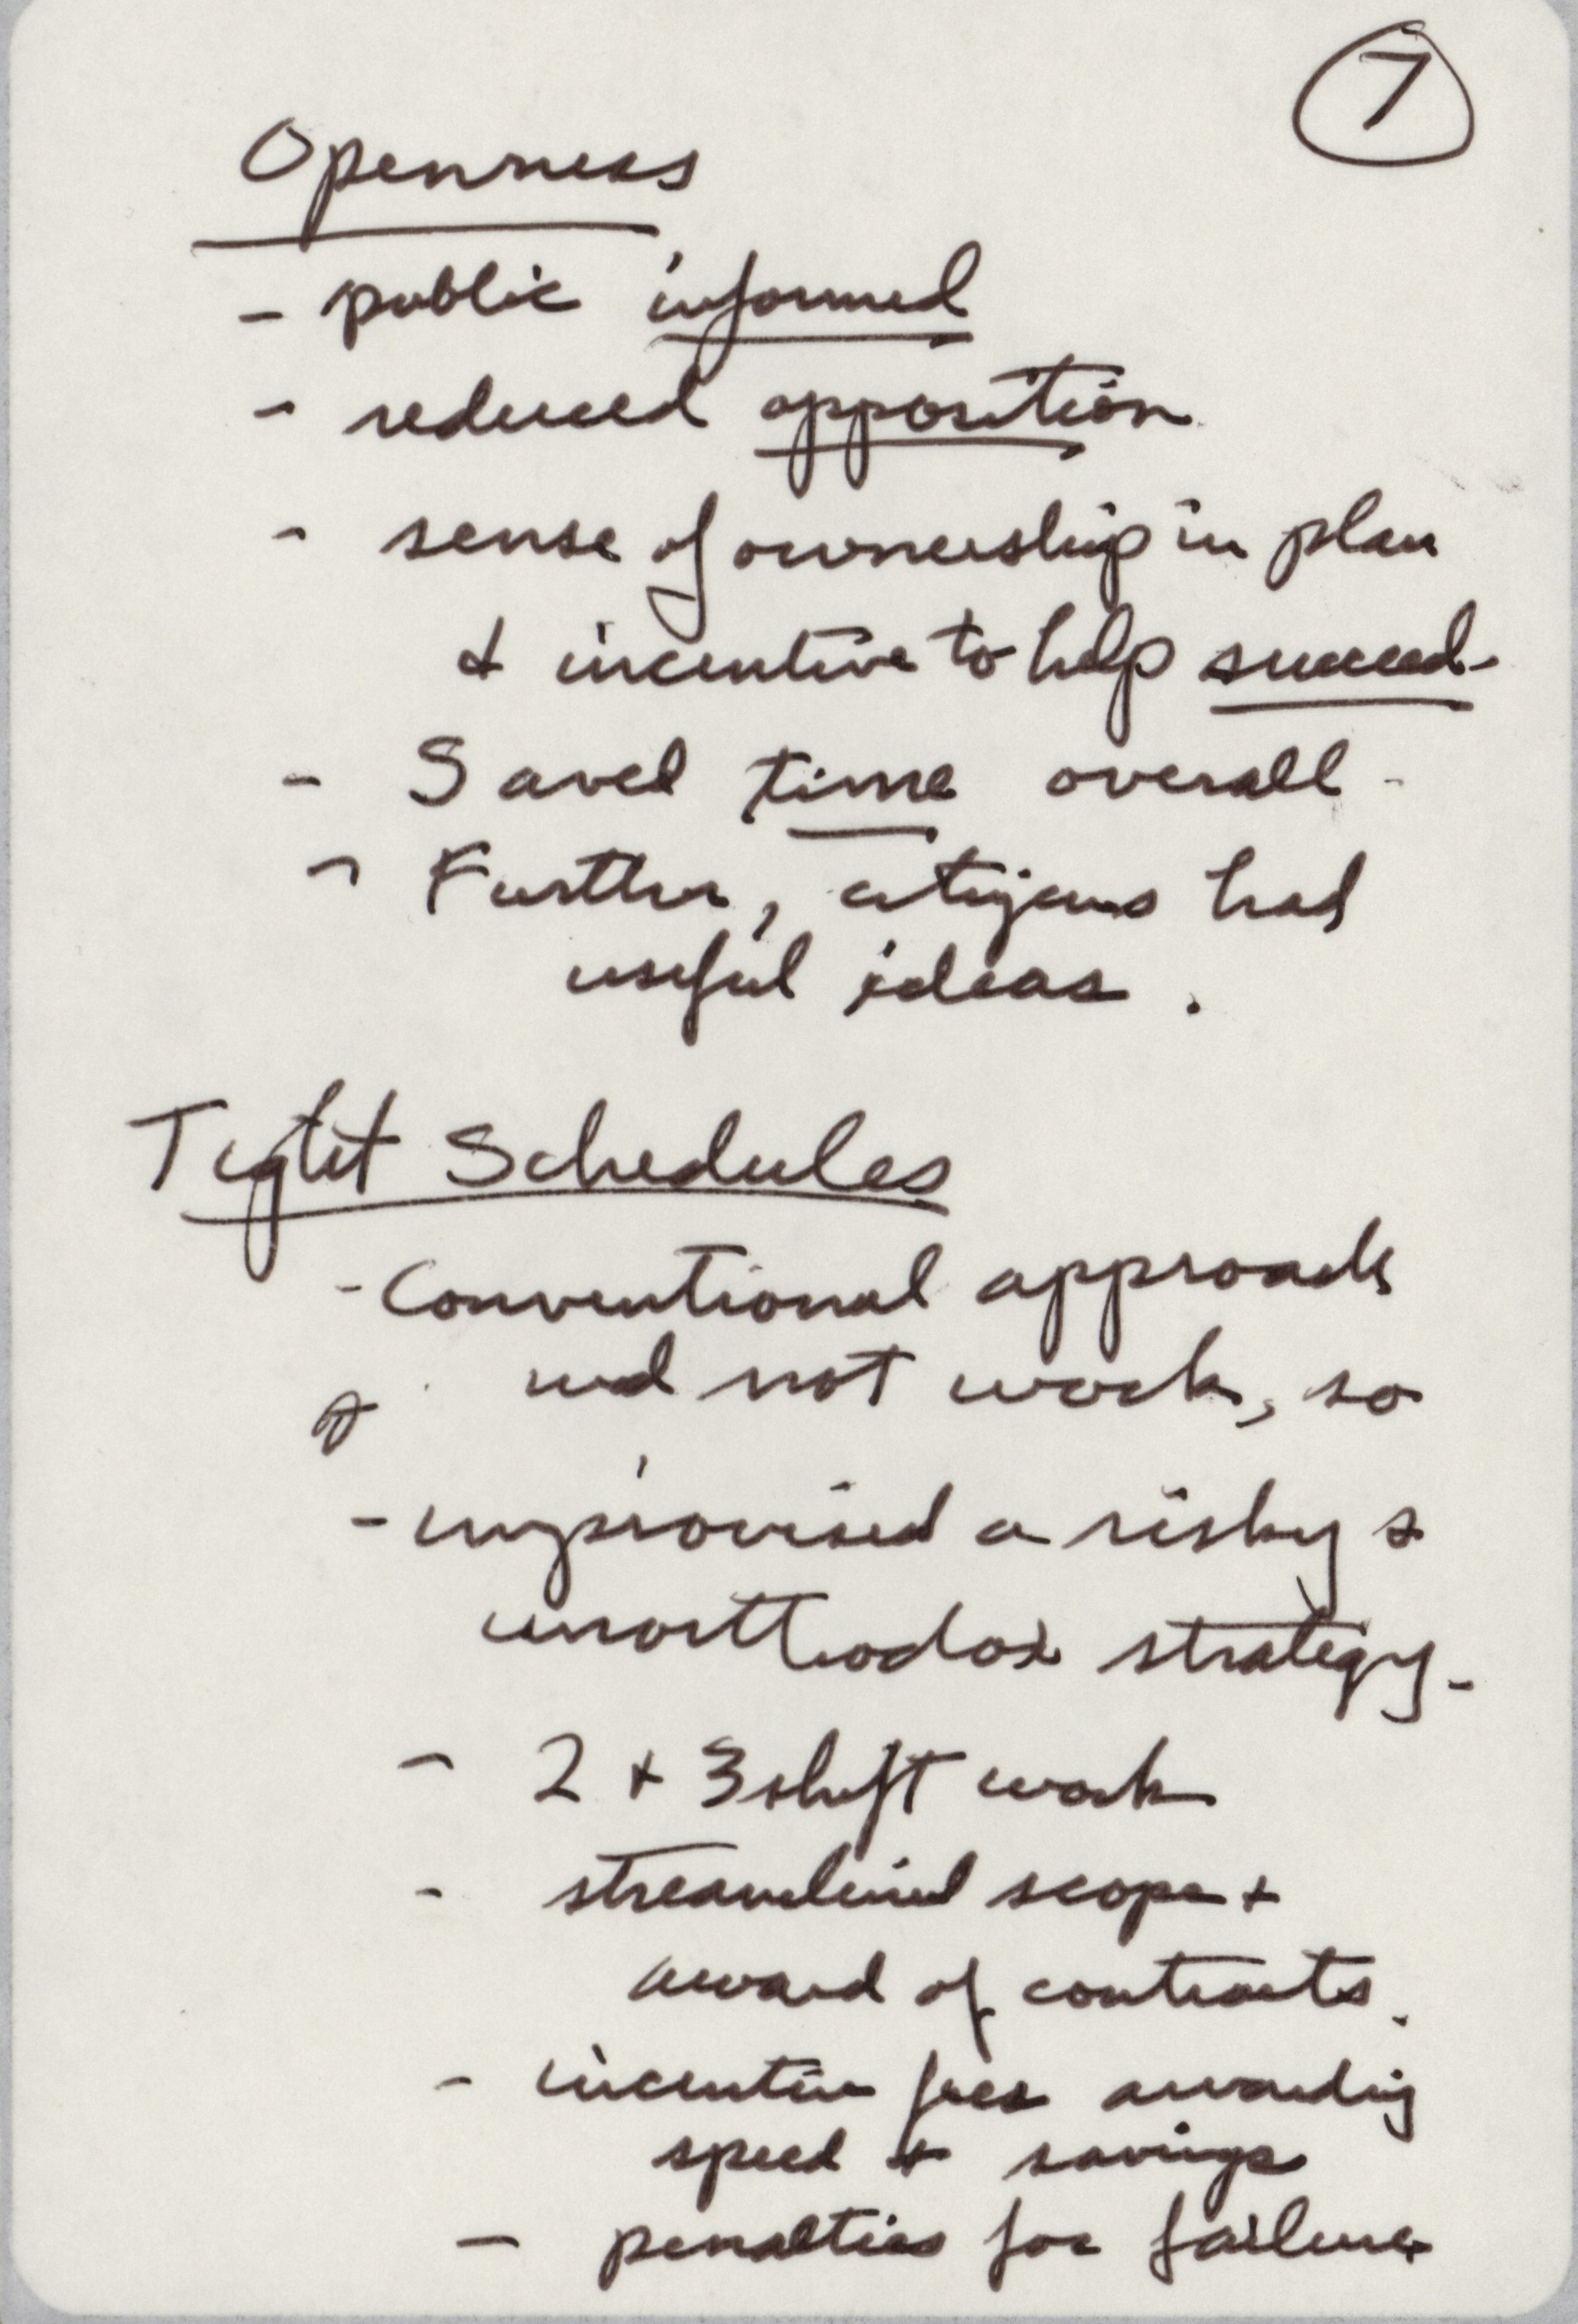 7
Openness
- public informed
- reduced opposition
- sense of ownership in plan
& incentive to help succeed -
- Saved time overall -
- Further, citizens had
useful ideas.
Tight Schedules
- Conventional approach
wd not work, so
- improvised a risky &
unorthodox strategy -
- 2 + 3 shift work
- streamlined scope +
award of contracts.
- incentive fees awarding
speed + savings
- penalties for failure